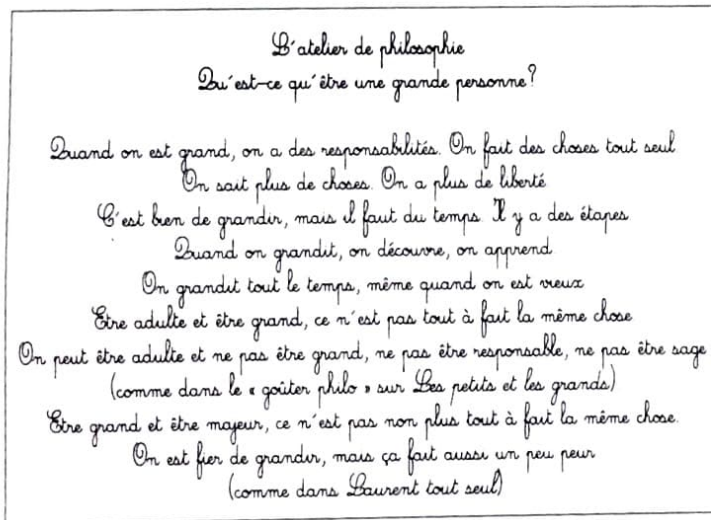 L'atelier de philosophie
Qu'est-ce qu'être une grande personne?
Quand on est grand, on a des responsabilités. On fait des choses tout seul
On sait plus de choses. On a plus de liberté
C'est bien de grandir, mais il faut du temps. Il y a des étapes
Quand on grandit, on découvre, on apprend
On grandit tout le temps, même quand on est vieux
Etre adulte et être grand, ce n'est pas tout à fait la même chose
On peut être adulte et ne pas être grand, ne pas être responsable, ne pas être sage
(comme dans le « goûter philo » sur Les petits et les grands)
Etre grand et être majeur, ce n'est pas non plus tout à fait la même chose.
On est fier de grandir, mais ça fait aussi un peu peur
(comme dans Laurent tout seul)